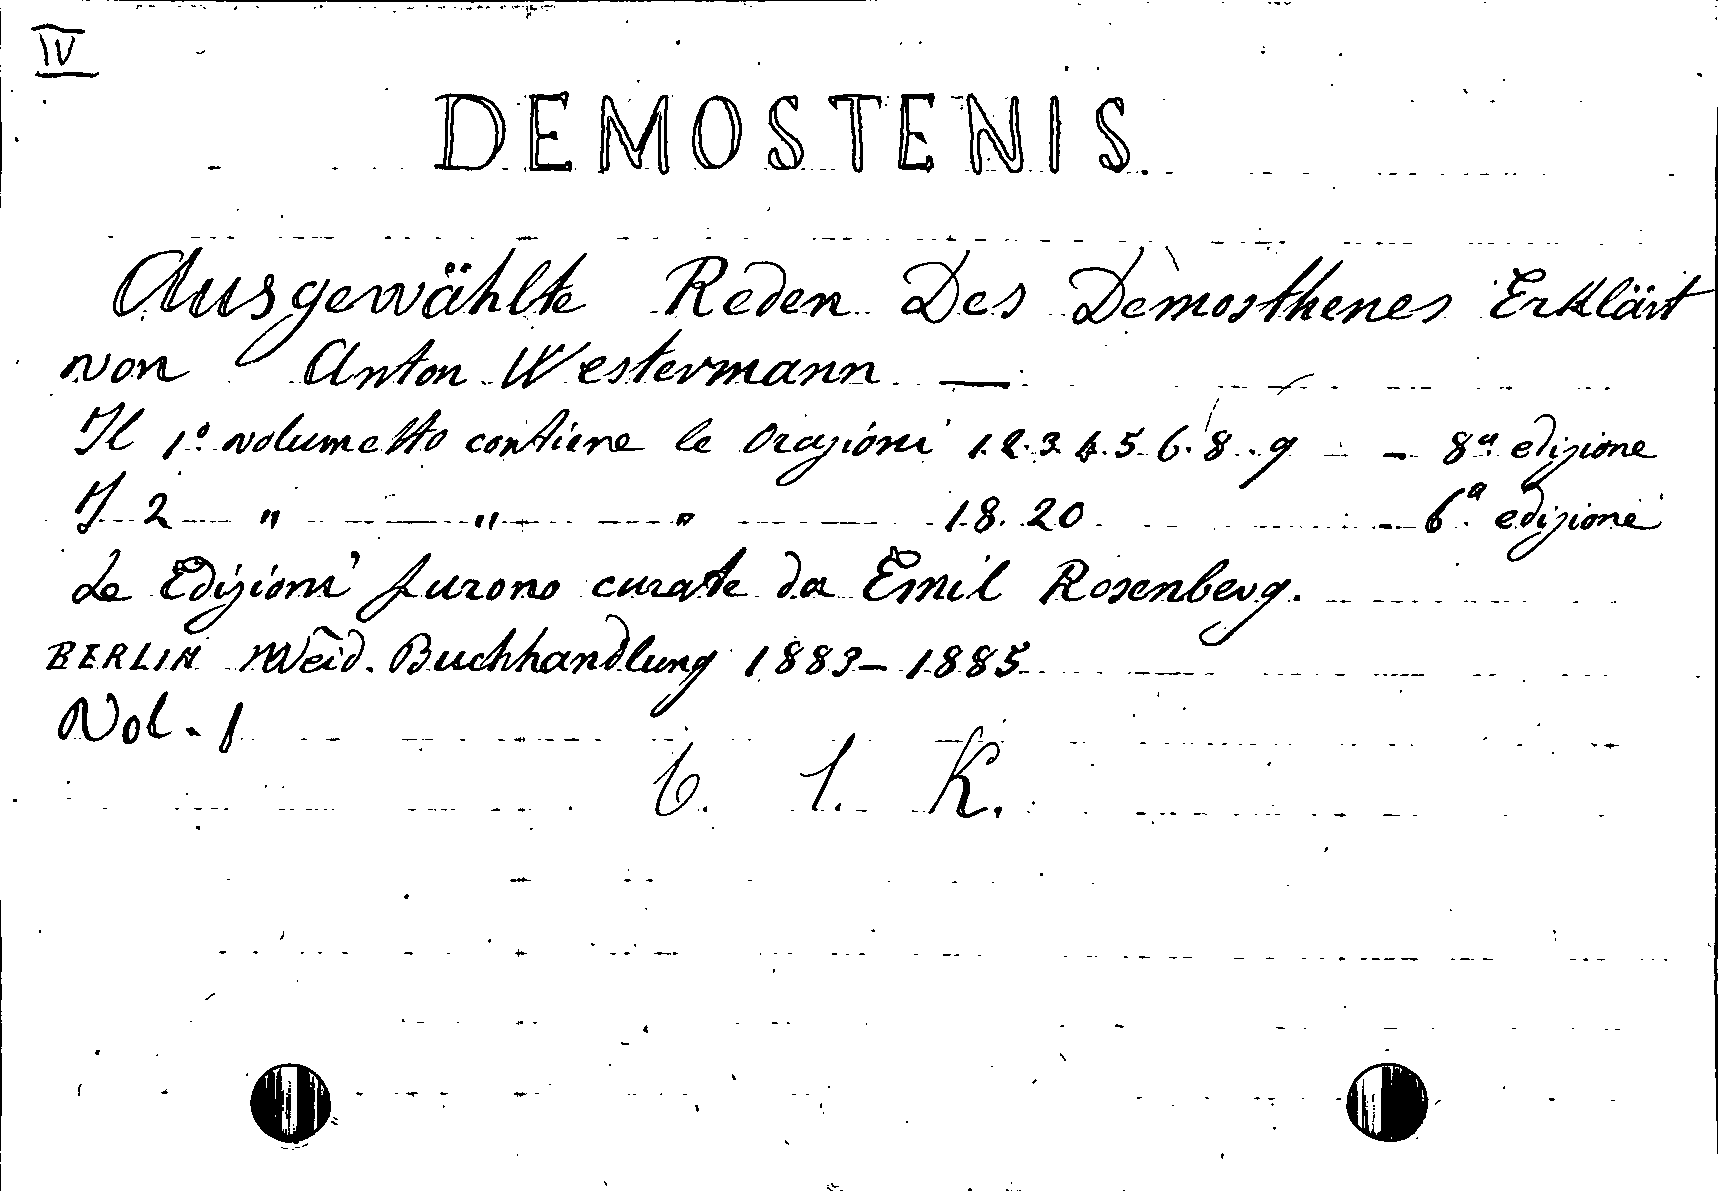 IV
DEMOSTENIS.
Ausgewählte Reden Des Demosthenes Erklärt
von Anton Westermann —
Il 1º volumetto contiene le Orazioni 1.2.3.4.5.6.8.9 - - 8ª edizione
I 2 " " " 18. 20 - 6ª edizione
Le Edizioni furono curate da Emil Rosenberg.
BERLIN Weid. Buchhandlung 1883-1885
Vol. 1
6. 1. K.